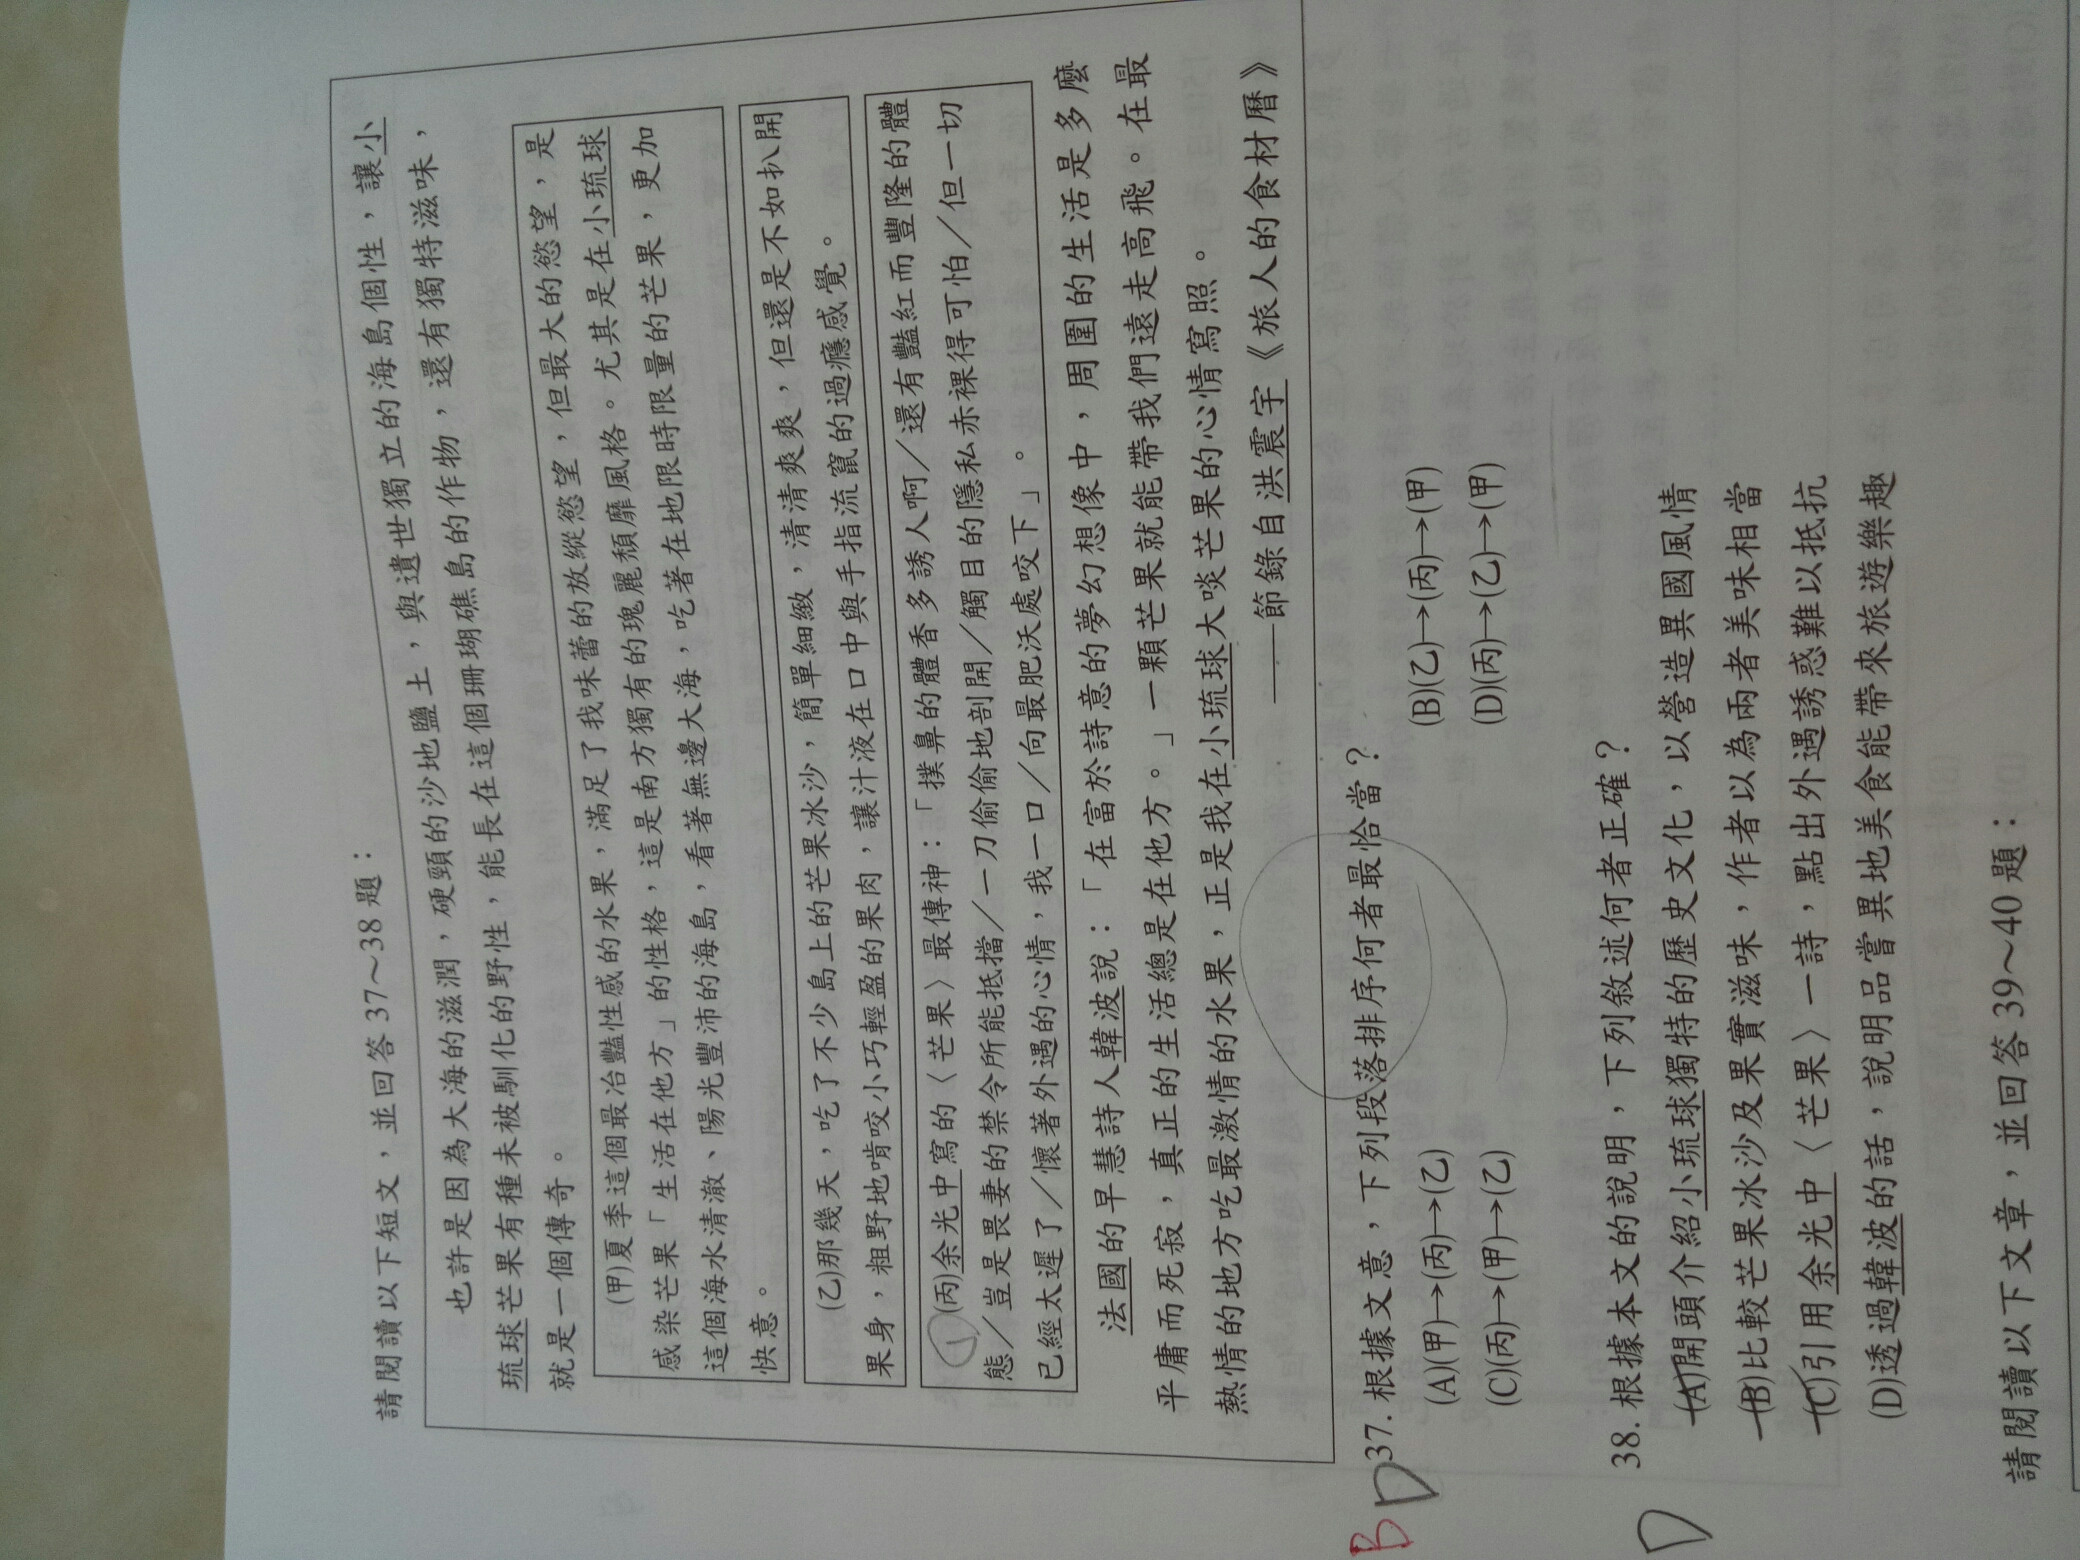 請閱讀以下短文，並回答 37～38 題：
也許是因為大海的滋潤，硬頸的沙地鹽土，與遺世獨立的海島個性，讓小
琉球芒果有種未被馴化的野性，能長在這個珊瑚礁島的作物，還有獨特滋味，
就是一個傳奇。
(甲)夏季這個最冶豔性感的水果，滿足了我味蕾的放縱慾望，但最大的慾望，是
感染芒果「生活在他方」的性格，這是南方獨有的瑰麗頹靡風格。尤其是在小琉球
這個海水清澈、陽光豐沛的海島，看著無邊大海，吃著在地限時限量的芒果，更加
快意。
(乙)那幾天，吃了不少島上的芒果冰沙，簡單細緻，清清爽爽，但還是不如扒開
果身，粗野地啃咬小巧輕盈的果肉，讓汁液在口中與手指流竄的過癮感覺。
(丙)余光中寫的〈芒果〉最傳神：「撲鼻的體香多誘人啊／還有豔紅而豐隆的體
態／豈是畏妻的禁令所能抵擋／一刀偷偷地剖開／觸目的隱私赤裸得可怕／但一切
已經太遲了／懷著外遇的心情，我一口／向最肥沃處咬下」。
法國的早慧詩人韓波說：「在富於詩意的夢幻想像中，周圍的生活是多麼
平庸而死寂，真正的生活總是在他方。」一顆芒果就能帶我們遠走高飛。在最
熱情的地方吃最激情的水果，正是我在小琉球大啖芒果的心情寫照。
——節錄自洪震宇《旅人的食材曆》
B D 37. 根據文意，下列段落排序何者最恰當？
(A)(甲)→(丙)→(乙) (B)(乙)→(丙)→(甲)
(C)(丙)→(甲)→(乙) (D)(丙)→(乙)→(甲)
D 38. 根據本文的說明，下列敘述何者正確？
(A)開頭介紹小琉球獨特的歷史文化，以營造異國風情
(B)比較芒果冰沙及果實滋味，作者以為兩者美味相當
(C)引用余光中〈芒果〉一詩，點出外遇誘惑難以抵抗
(D)透過韓波的話，說明品嘗異地美食能帶來旅遊樂趣
請閱讀以下文章，並回答 39～40 題：